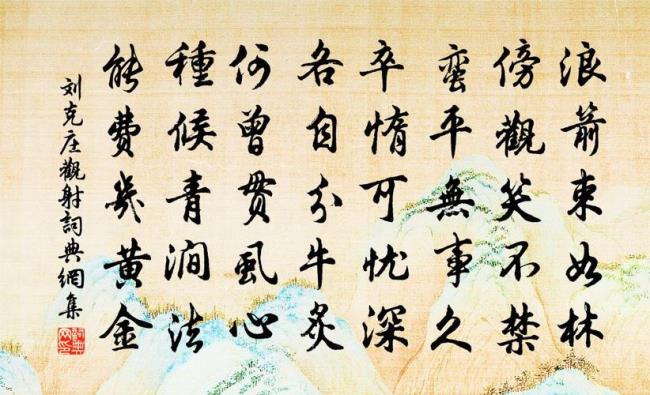 浪箭束如林
傍觀笑不禁
蛮平無事久
卒惰可忧深
各自分牛炙
何曾贯風心
種候青涧法
能费幾黄金
刘克庄觀射詞典網集